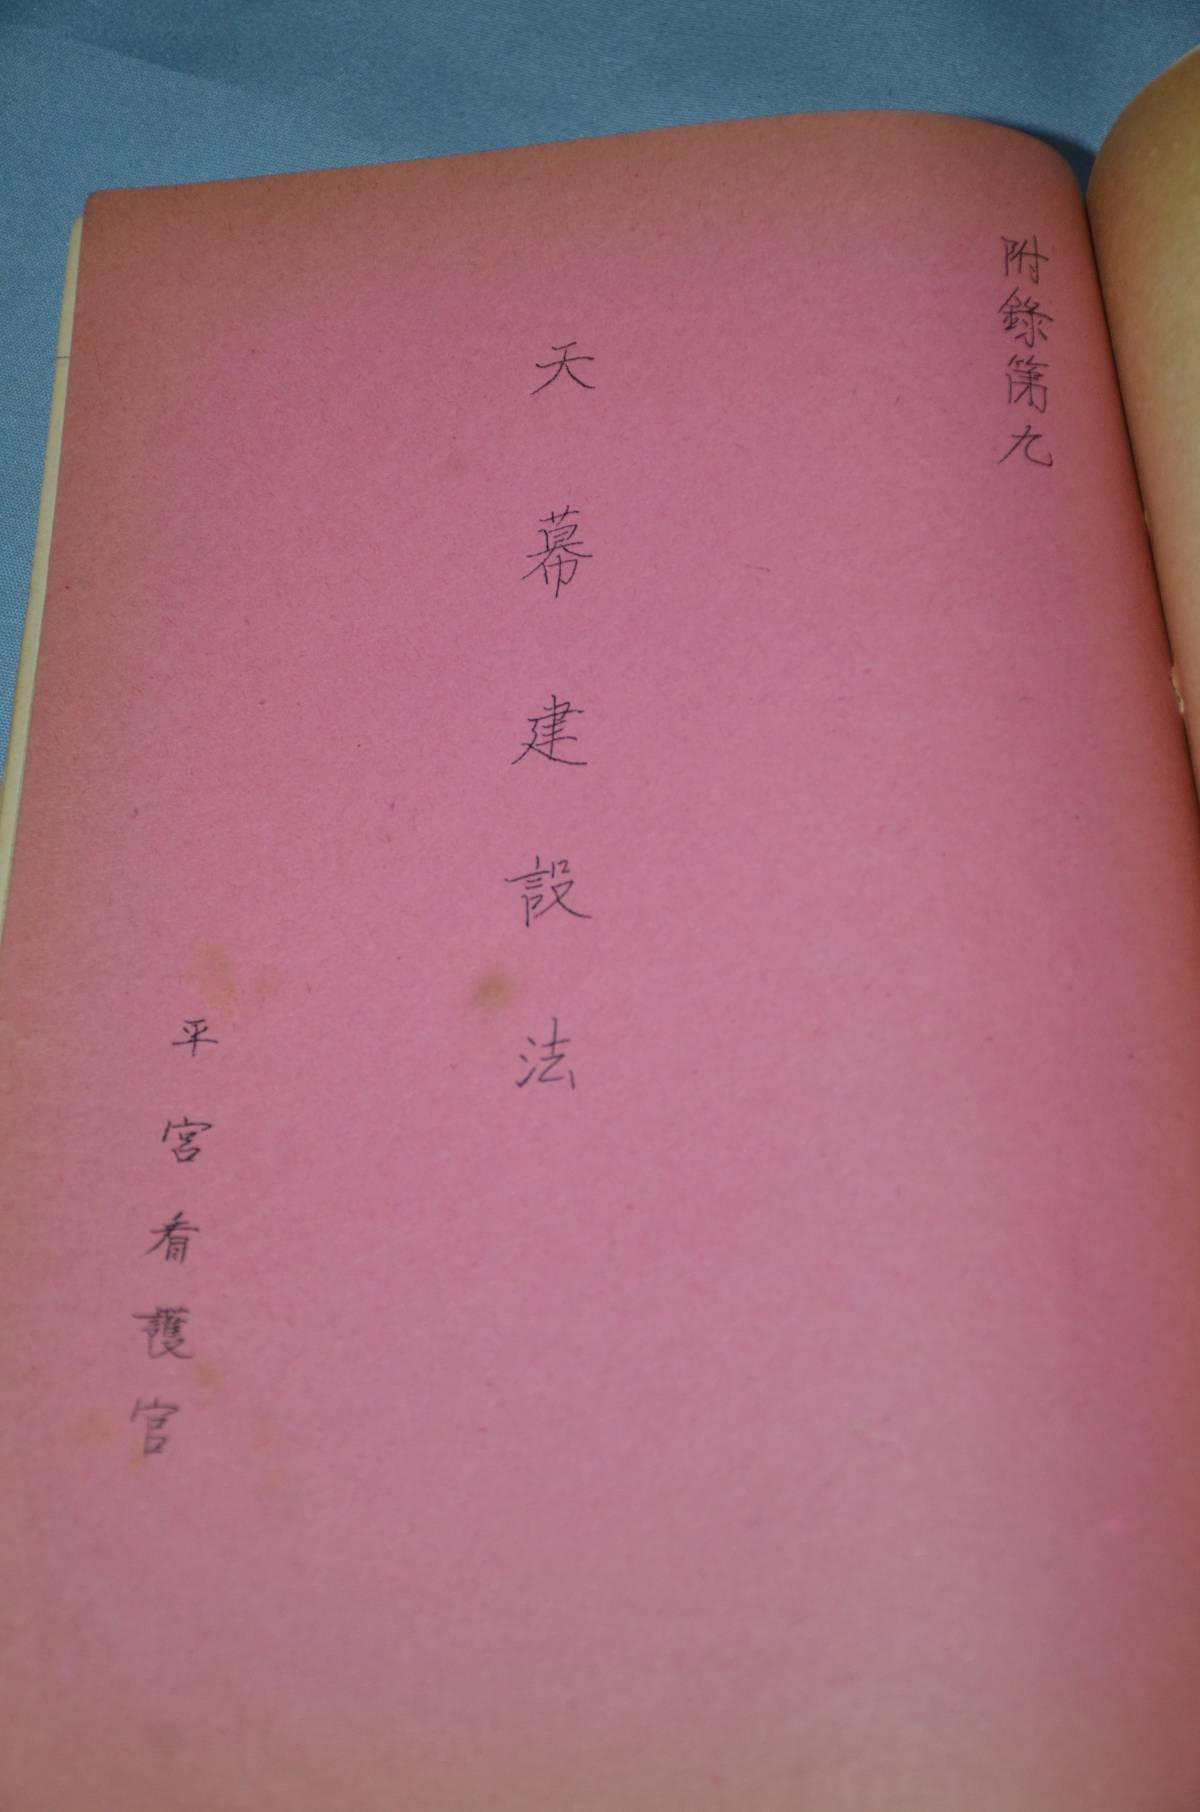 附錄第九
天幕建設法
平宮看護官